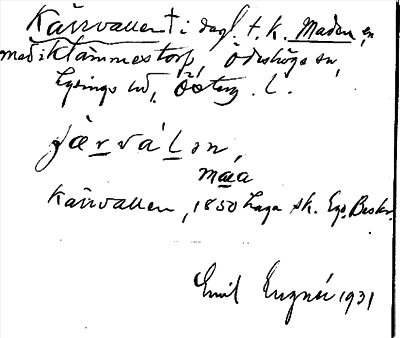 Kärrvallen † i dagl. t. k. Maden, en
med i Klämmestorp, Ödeshögs sn,
Lysings hd, Österg. l.
jærvál ən,
maa
Kärrvallen, 1850 Laga sk. Ego. Beskr.
Emil 1931